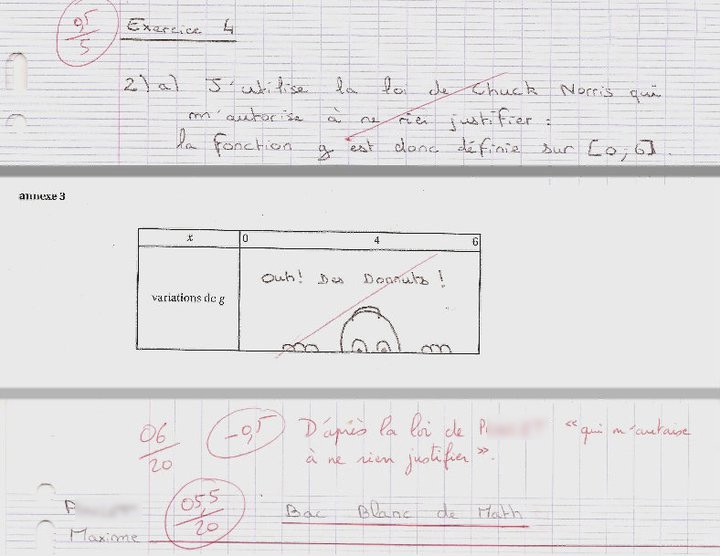 0,5/5
Exercice 4
2) a) J'utilise la loi de Chuck Norris qui
m'autorise à ne rien justifier :
la fonction g est donc définie sur [0;6].
annexe 3
x 0 4 6
Ouh! Des Donnuts !
variations de g
06/20 -0,5 D'après la loi de P "qui m'autorise
à ne rien justifier".
P 05,5/20 Bac Blanc de Math
Maxime